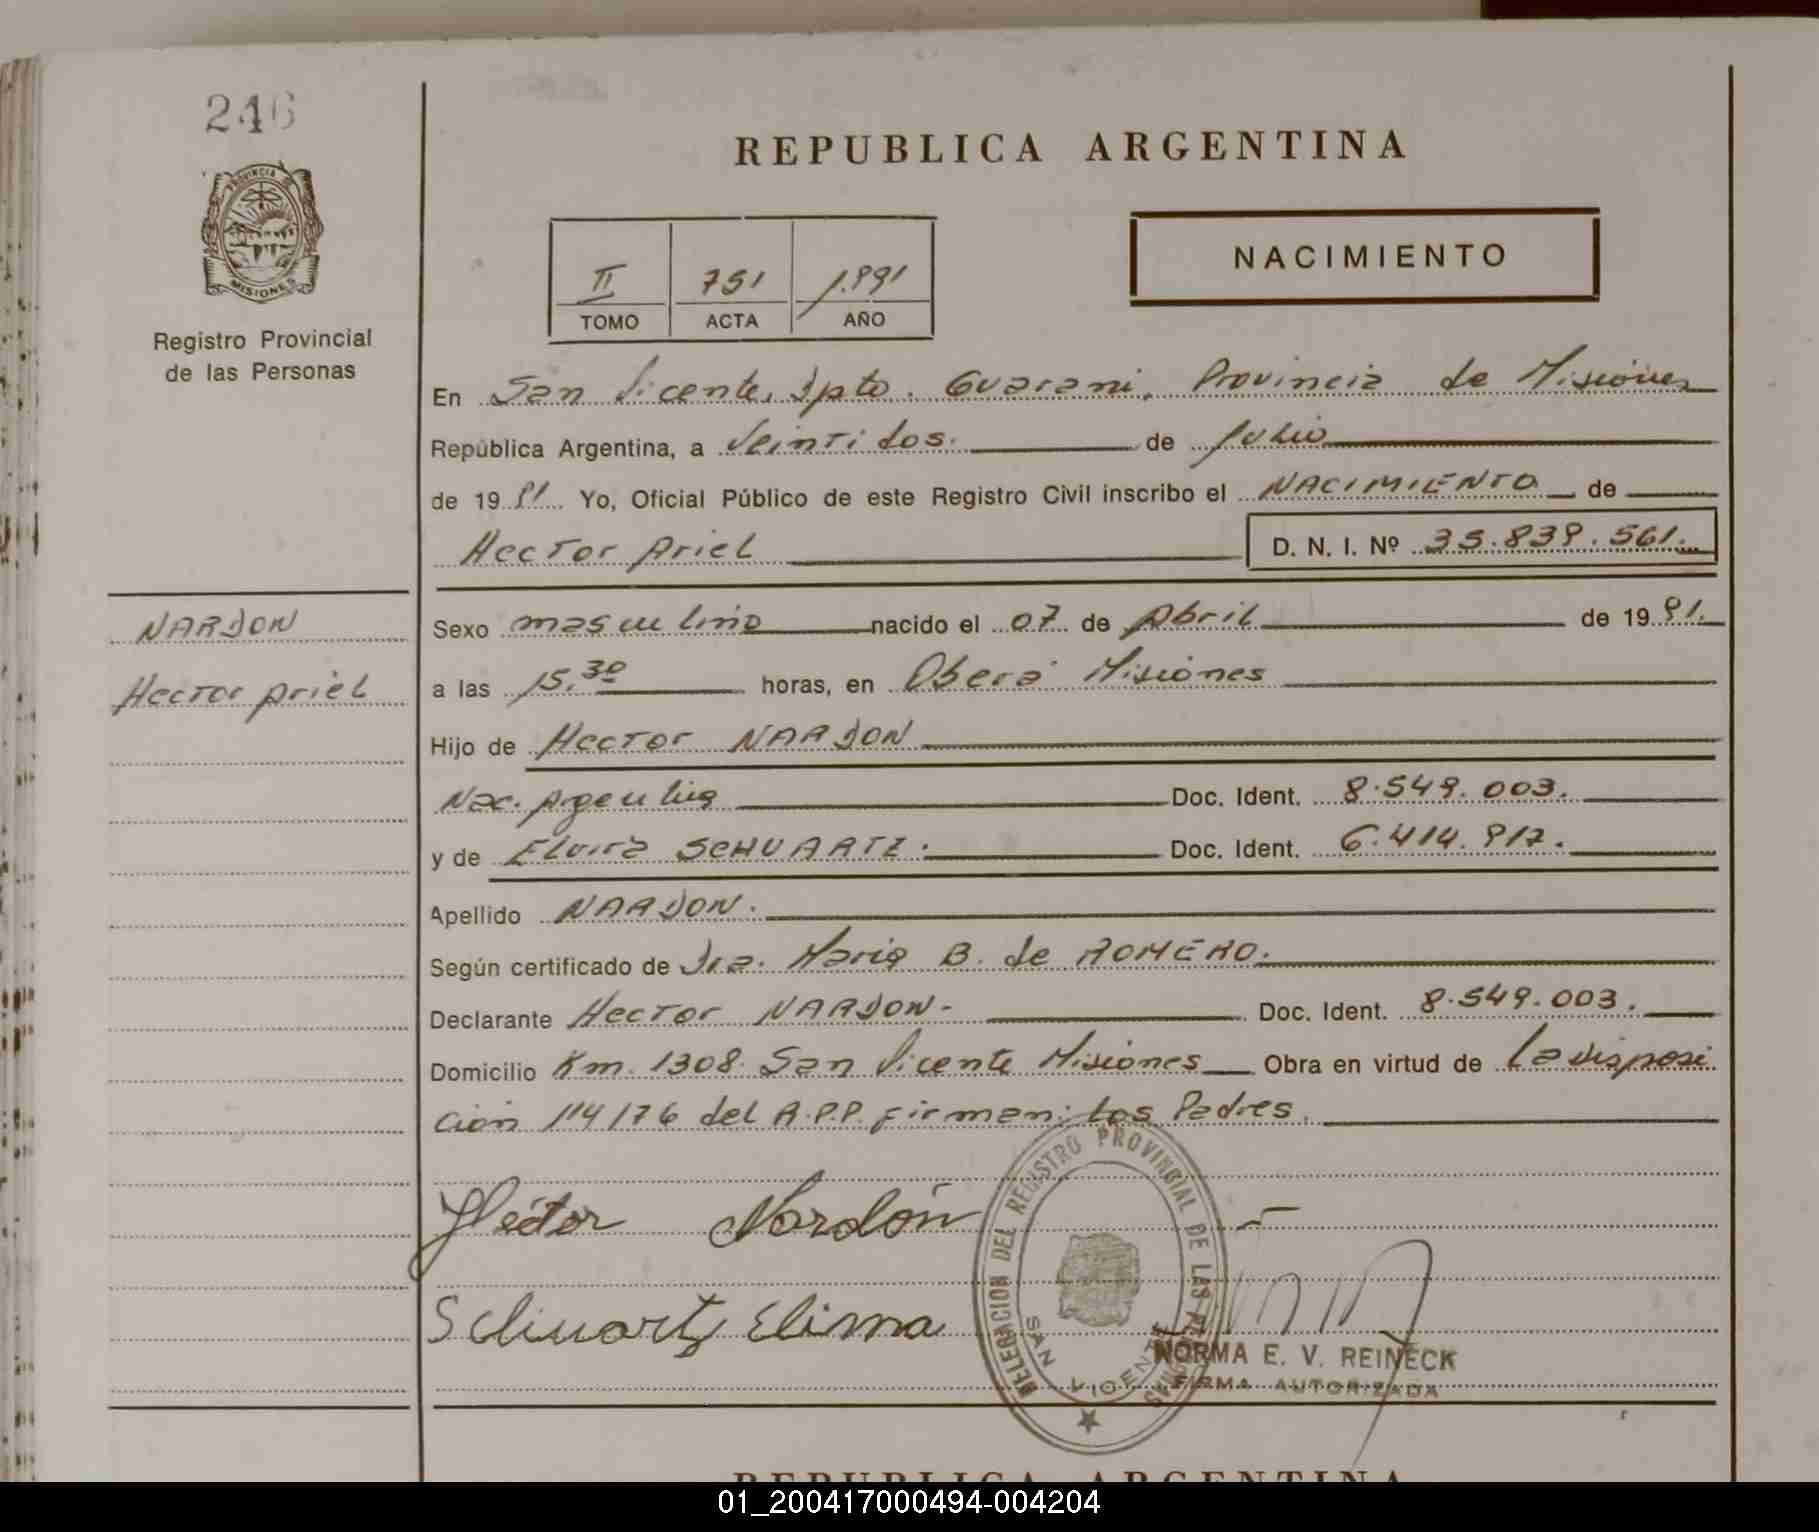 246
REPUBLICA ARGENTINA
PROVINCIA DE
MISIONES
Registro Provincial
de las Personas
NACIMIENTO
II 751 1.991
TOMO ACTA AÑO
En San Vicente, Dpto. Guarani, Provincia de Misiones
República Argentina, a Veintidos. de Julio
de 1991 Yo, Oficial Público de este Registro Civil inscribo el NACIMIENTO de
Hector Ariel D. N. I. Nº 35.839.561.
NARDON
Hector Ariel
Sexo masculino nacido el 07 de Abril de 1991.
a las 15,30 horas, en Oberá Misiones
Hijo de Hector NARDON
Nac. Argentina Doc. Ident. 8.549.003.
y de Elvira SCHUARTZ. Doc. Ident. 6.414.917.
Apellido NARDON.
Según certificado de Dra. Maria B. de ROMERO.
Declarante Hector NARDON- Doc. Ident. 8.549.003.
Domicilio Km. 1308. San Vicente Misiones Obra en virtud de La disposi
ción 114/76 del R.P.P. firman: Los Padres.
Héctor Nardón
Schuartz
DELEGACION DEL REGISTRO PROVINCIAL DE LAS PERSONAS
SAN VICENTE
NORMA E. V. REINECK
FIRMA AUTORIZADA
REPUBLICA ARGENTINA
01_200417000494-004204